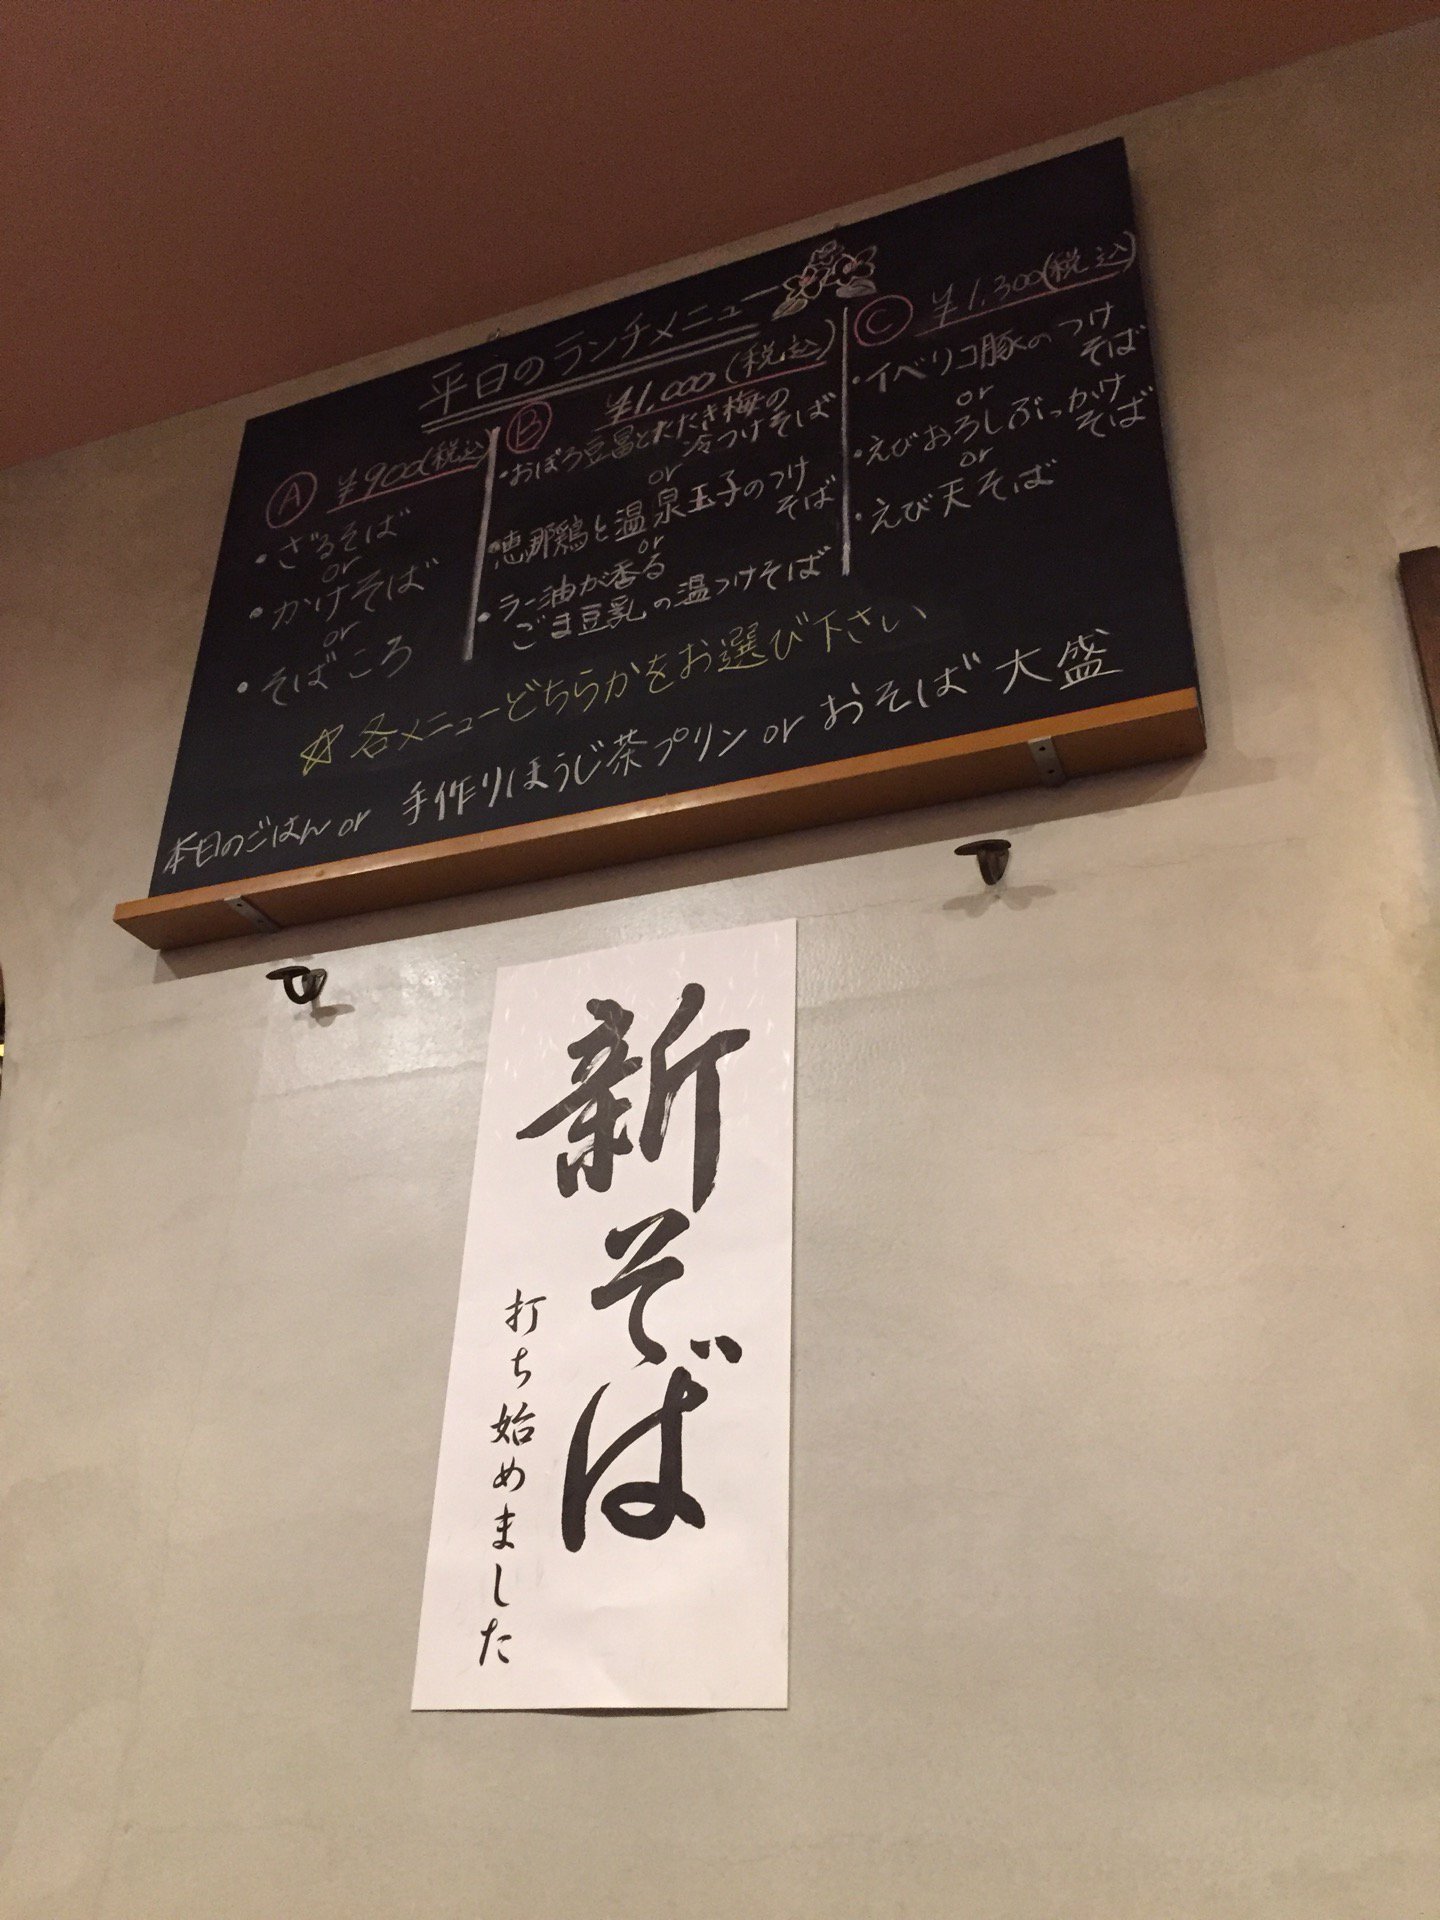 平日のランチメニュー
Ⓐ ¥900(税込)
・ざるそば
or
・かけそば
or
・そばころ
Ⓑ ¥1,000(税込)
・おぼろ豆冨とたたき梅の
冷つけそば
or
・恵那鶏と温泉玉子のつけ
そば
or
・ラー油が香る
ごま豆乳の温つけそば
Ⓒ ¥1,300(税込)
・イベリコ豚のつけ
そば
or
・えびおろしぶっかけ
そば
or
・えび天そば
☆各メニューどちらかをお選び下さい
本日のごはん or 手作りほうじ茶プリン or おそば大盛
新そば
打ち始めました